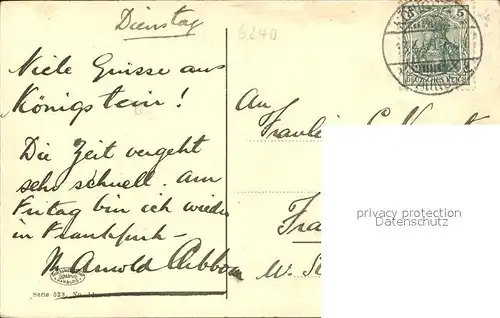 Dienstag
6240
Viele Grüsse aus
Königstein!
Die Zeit vergeht
sehr schnell. Am
Freitag bin ich wieder
in Frankfurt –
Arnold
Serie 523. No.
An
Fraulein
Fra
privacy protection
Datenschutz